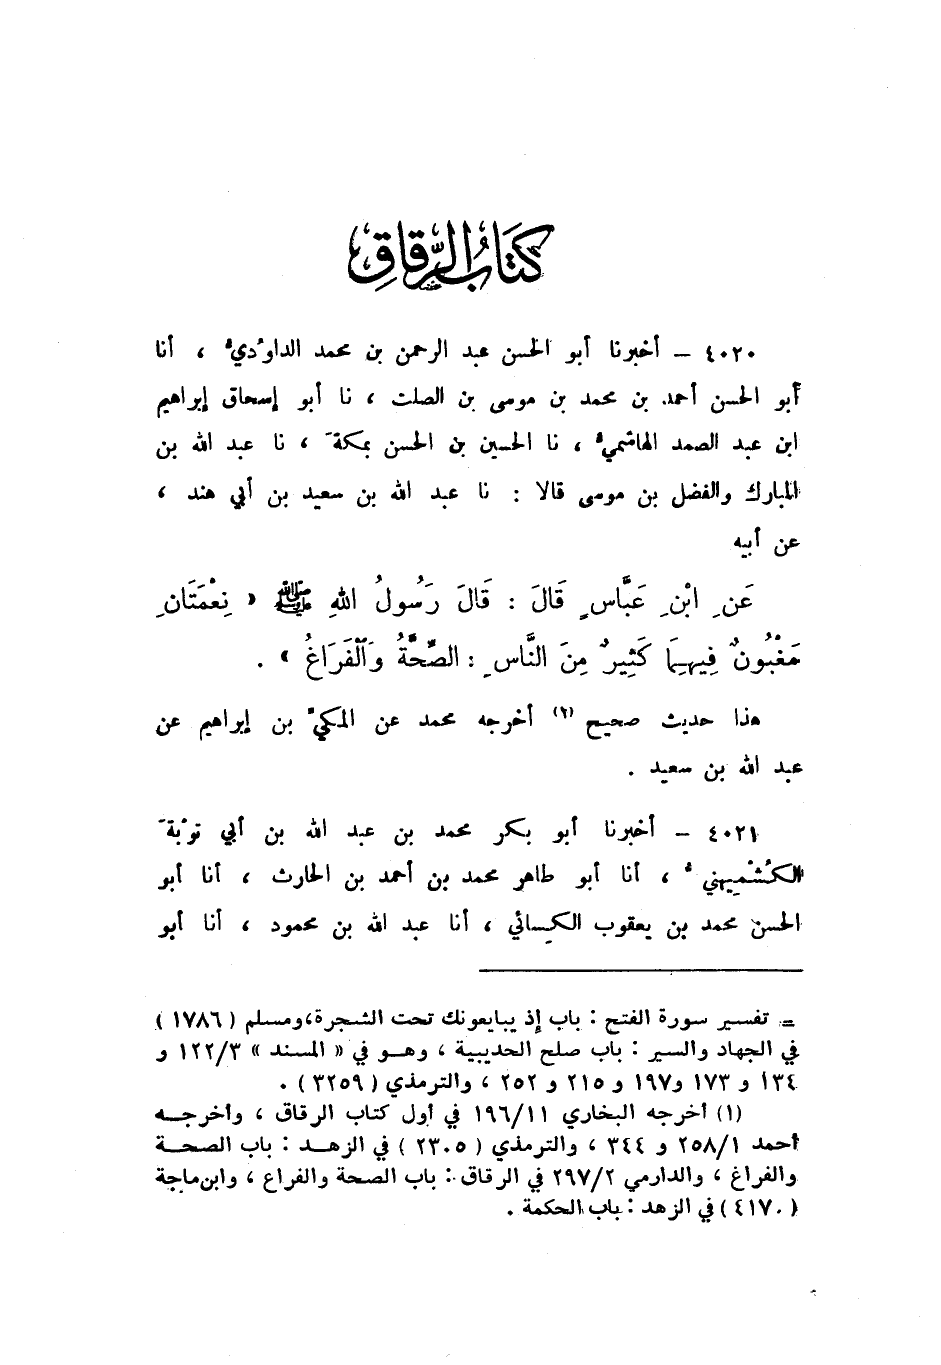 كتاب الرقاق
٤٠٢٠ – أخبرنا أبو الحسن عبد الرحمن بن محمد الداوُديُّ ، أنا
أبو الحسن أحمد بن محمد بن موسى بن الصلت ، نا أبو إسحاق إبراهيم
ابن عبد الصمد الهاشميُّ ، نا الحسين بن الحسن بمكةَ ، نا عبد الله بن
المبارك والفضل بن موسى قالا : نا عبد الله بن سعيد بن أبي هند ،
عن أبيه
عَنِ ابْنِ عَبَّاسٍ قَالَ : قَالَ رَسُولُ اللهِ ﷺ « نِعْمَتَانِ
مَغْبُونٌ فِيهِمَا كَثِيرٌ مِنَ النَّاسِ : الصِّحَّةُ وَالْفَرَاغُ » .
هذا حديث صحيح (٢) أخرجه محمد عن المكيّ بن إبراهيم عن
عبد الله بن سعيد .
٤٠٢١ – أخبرنا أبو بكر محمد بن عبد الله بن أبي توْبةَ
الكُشْمِيهنيُّ ، أنا أبو طاهر محمد بن أحمد بن الحارث ، أنا أبو
الحسن محمد بن يعقوب الكسائي ، أنا عبد الله بن محمود ، أنا أبو
= تفسير سورة الفتح : باب إذ يبايعونك تحت الشجرة،ومسلم ( ١٧٨٦ )
في الجهاد والسير : باب صلح الحديبية ، وهو في « المسند » ١٢٢/٣ و
١٣٤ و ١٧٣ و١٩٧ و ٢١٥ و ٢٥٢ ، والترمذي ( ٣٢٥٩ ) .
(١) أخرجه البخاري ١٩٦/١١ في أول كتاب الرقاق ، وأخرجه
أحمد ٢٥٨/١ و ٣٤٤ ، والترمذي ( ٢٣٠٥ ) في الزهد : باب الصحة
والفراغ ، والدارمي ٢٩٧/٢ في الرقاق : باب الصحة والفراع ، وابن ماجة
( ٤١٧٠ ) في الزهد : باب الحكمة .